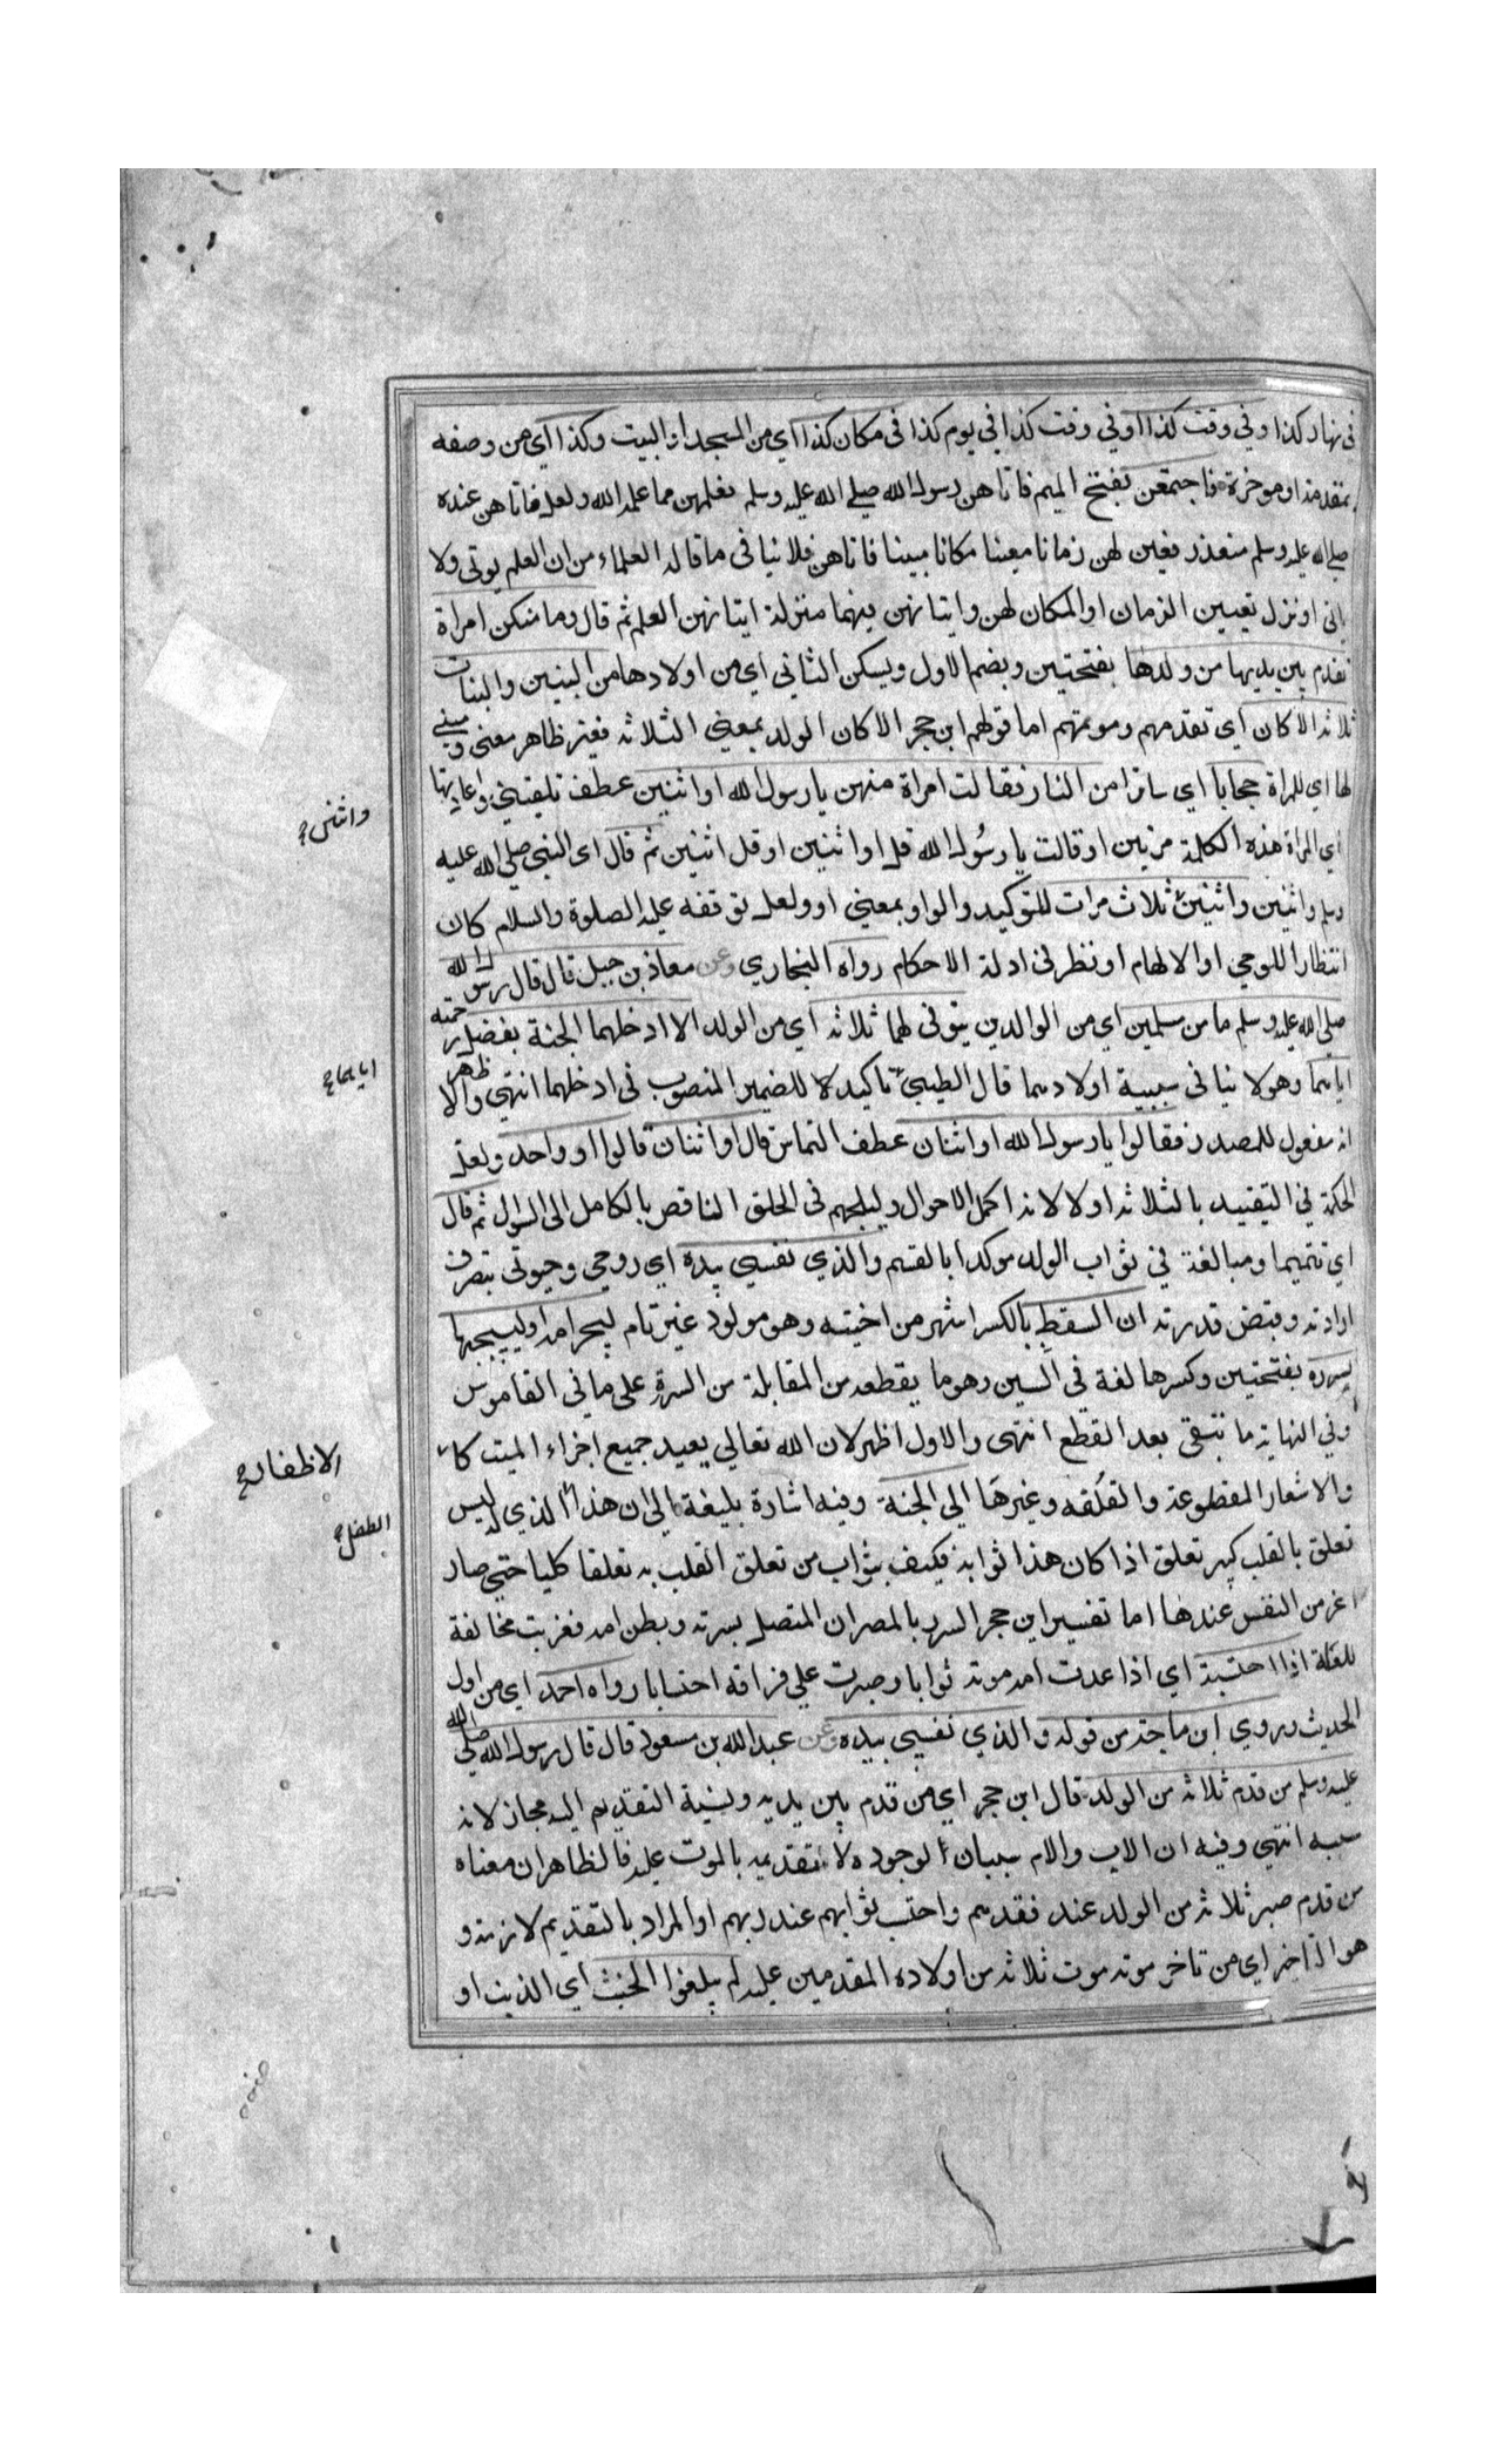 في نهار كذا وفي وقت كذا اوفي وقت كذا في يوم كذا في مكان كذا اي من المسجد او البيت وكذا اي من وصفه
بمقدمته او موخرة فاجتمعن بفتح الميم فاتاهن رسول الله صلى الله عليه وسلم فعلمهن مما علمه الله ولعل فاتاهن عنده
صلى الله عليه وسلم متعذر فعين لهن زمانا معينا مكانا مبينا فاتاهن فلا ينافى ما قاله العلماء من ان العلم يوتى ولا
ياتى او نزل تعيين الزمان او المكان لهن واتيانهن فيهما منزلة اتيانهن العلم ثم قال وما منكن امراة
تقدم بين يديها من ولدها بفتحتين وبضم الاول ويسكن الثاني اي من اولادها من البنين والبنات
ثلاثة الا كان اي تقدمهم وموتهم اما قولهم ابن حجر الا كان الولد بمعني الثلاثة فغير ظاهر معنى ومبنى
لها اي للمراة حجابا اي ساترا من النار فقالت امراة منهن يا رسول الله او اثنين عطف تلقيني فاعادتها
اي المراة هذه الكلمة مرتين او قالت يا رسول الله قل او اثنين او قل اثنين ثم قال اى النبى صلى الله عليه
وسلم واثنين واثنين ثلاث مرات للتوكيد والواو بمعني او ولعل توقفه عليه الصلوة والسلام كان
انتظارا للوحي او الالهام او نظر فى ادلة الاحكام رواه البخاري وعن معاذ بن جبل قال قال رسول الله
صلى الله عليه وسلم ما من مسلمين اي من الوالدين يتوفى لهما ثلاثة اي من الولد الا ادخلهما الجنة بفضل رحمته
اياهما وهو لا ينافى سببية اولادهما قال الطيبي تاكيد لا للضمير المنصوب في ادخلهما انتهى والا ظهر
انه مفعول للمصدر فقالوا يا رسول الله او اثنان عطف التماس قال او اثنان قالوا او واحد ولعل
الحكمة في التقييد بالثلاثة اولا لانه اكمل الاحوال وليلجهم في الحلق الناقص بالكامل الى السوال ثم قال
اي تتميما ومبالغة في ثواب الولد موكدا بالقسم والذي نفسي بيده اي روحي وحيوتي بتصرف
ارادته وقبض قدرته ان السقط بالكسر اشهر من اخيته وهو مولود غير تام ليجر امه اوليسحبها
بسرره بفتحتين وكسرها لغة في السين وهو ما يقطعه من المقابلة من السرة على ما في القاموس
وفي النهاية ما تبقى بعد القطع انتهى والاول اظهر لان الله تعالي يعيد جميع اجزاء الميت كا
والاشعار المقطوعة والقلفه وغيرها الي الجنة وفيه اشارة بليغة الي ان هذا الذي ليس له
تعلق بالقلب كبير تعلق اذا كان هذا ثوابه فكيف بثواب من تعلق القلب به تعلقا كليا حتي صار
اعز من النفس عندها اما تفسير ابن حجر السرر بالمصران المتصل بسرته وبطن امه فغريب مخالفة
للغة اذا احتسبته اي اذا عدت امه موته ثوابا وصبرت علي فراقه احتسابا رواه احمد اي من اول
الحديث وروي ابن ماجة من قوله والذي نفسي بيده وعن عبد الله بن مسعود قال قال رسول الله صلى الله
عليه وسلم من قدم ثلاثة من الولد قال ابن حجر اي من قدم بين يديه ونسبة التقديم اليه مجاز لانه
سببه انتهي وفيه ان الاب والام سببان لوجوده لا لتقديمه بالموت عليه فالظاهر ان معناه
من قدم صبر ثلاثة من الولد عند فقدهم واحتسب ثوابهم عند ربهم او المراد بالتقديم لازمته و
هو التاخر اي من تاخر موته موت ثلاثة من اولاده المقدمين عليه لم يبلغوا الحنث اي الذنب او
واثنين
اياهما
الاظفار
الطفل